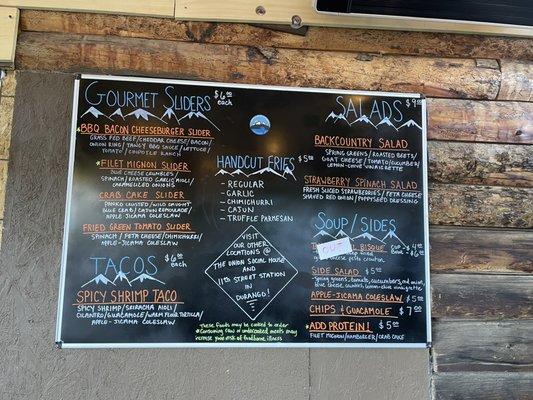 GOURMET SLIDERS $6.00 each
*BBQ BACON CHEESEBURGER SLIDER
GRASS FED BEEF/CHEDDAR CHEESE/BACON
ONION RING/TANGY BBQ SAUCE/LETTUCE
TOMATO/CHIPOTLE RANCH
*FILET MIGNON SLIDER
BLUE CHEESE CRUMBLES/
SPINACH/ROASTED GARLIC AIOLI/
CARAMELIZED ONIONS
CRAB CAKE SLIDER
PANKO CRUSTED/WILD CAUGHT
BLUE CRAB/CAJUN REMOULADE/
APPLE-JICAMA COLESLAW
FRIED GREEN TOMATO SLIDER
SPINACH/FETA CHEESE/CHIMICHURRI
/APPLE-JICAMA COLESLAW
TACOS $6.00 each
SPICY SHRIMP TACO
SPICY SHRIMP/SRIRACHA AIOLI/
CILANTRO/GUACAMOLE/WARM FLOUR TORTILLA/
APPLE-JICAMA COLESLAW
HANDCUT FRIES $5.00
- REGULAR
- GARLIC
- CHIMICHURRI
- CAJUN
- TRUFFLE PARMESAN
VISIT
OUR OTHER
LOCATIONS @
THE ONION SOCIAL
HOUSE AND
11TH STREET STATION
IN
DURANGO!
These foods may be cooked to order
*Consuming raw or undercooked meats may
increase your risk of foodborne illness
SALADS $9.00
BACKCOUNTRY SALAD
SPRING GREENS/ROASTED BEETS/
GOAT CHEESE/TOMATO/CUCUMBER/
LEMON-CHIVE VINAIGRETTE
STRAWBERRY SPINACH SALAD
FRESH SLICED STRAWBERRIES/FETA CHEESE
SHAVED RED ONION/POPPYSEED DRESSING
SOUP/SIDES
OUT
BISQUE CUP $4.00
SIDE SALAD $5.00
APPLE-JICAMA COLESLAW $5.00
CHIPS & GUACAMOLE $7.00
*ADD PROTEIN! $5.00
FILET MIGNON/HAMBURGER/CRAB CAKE